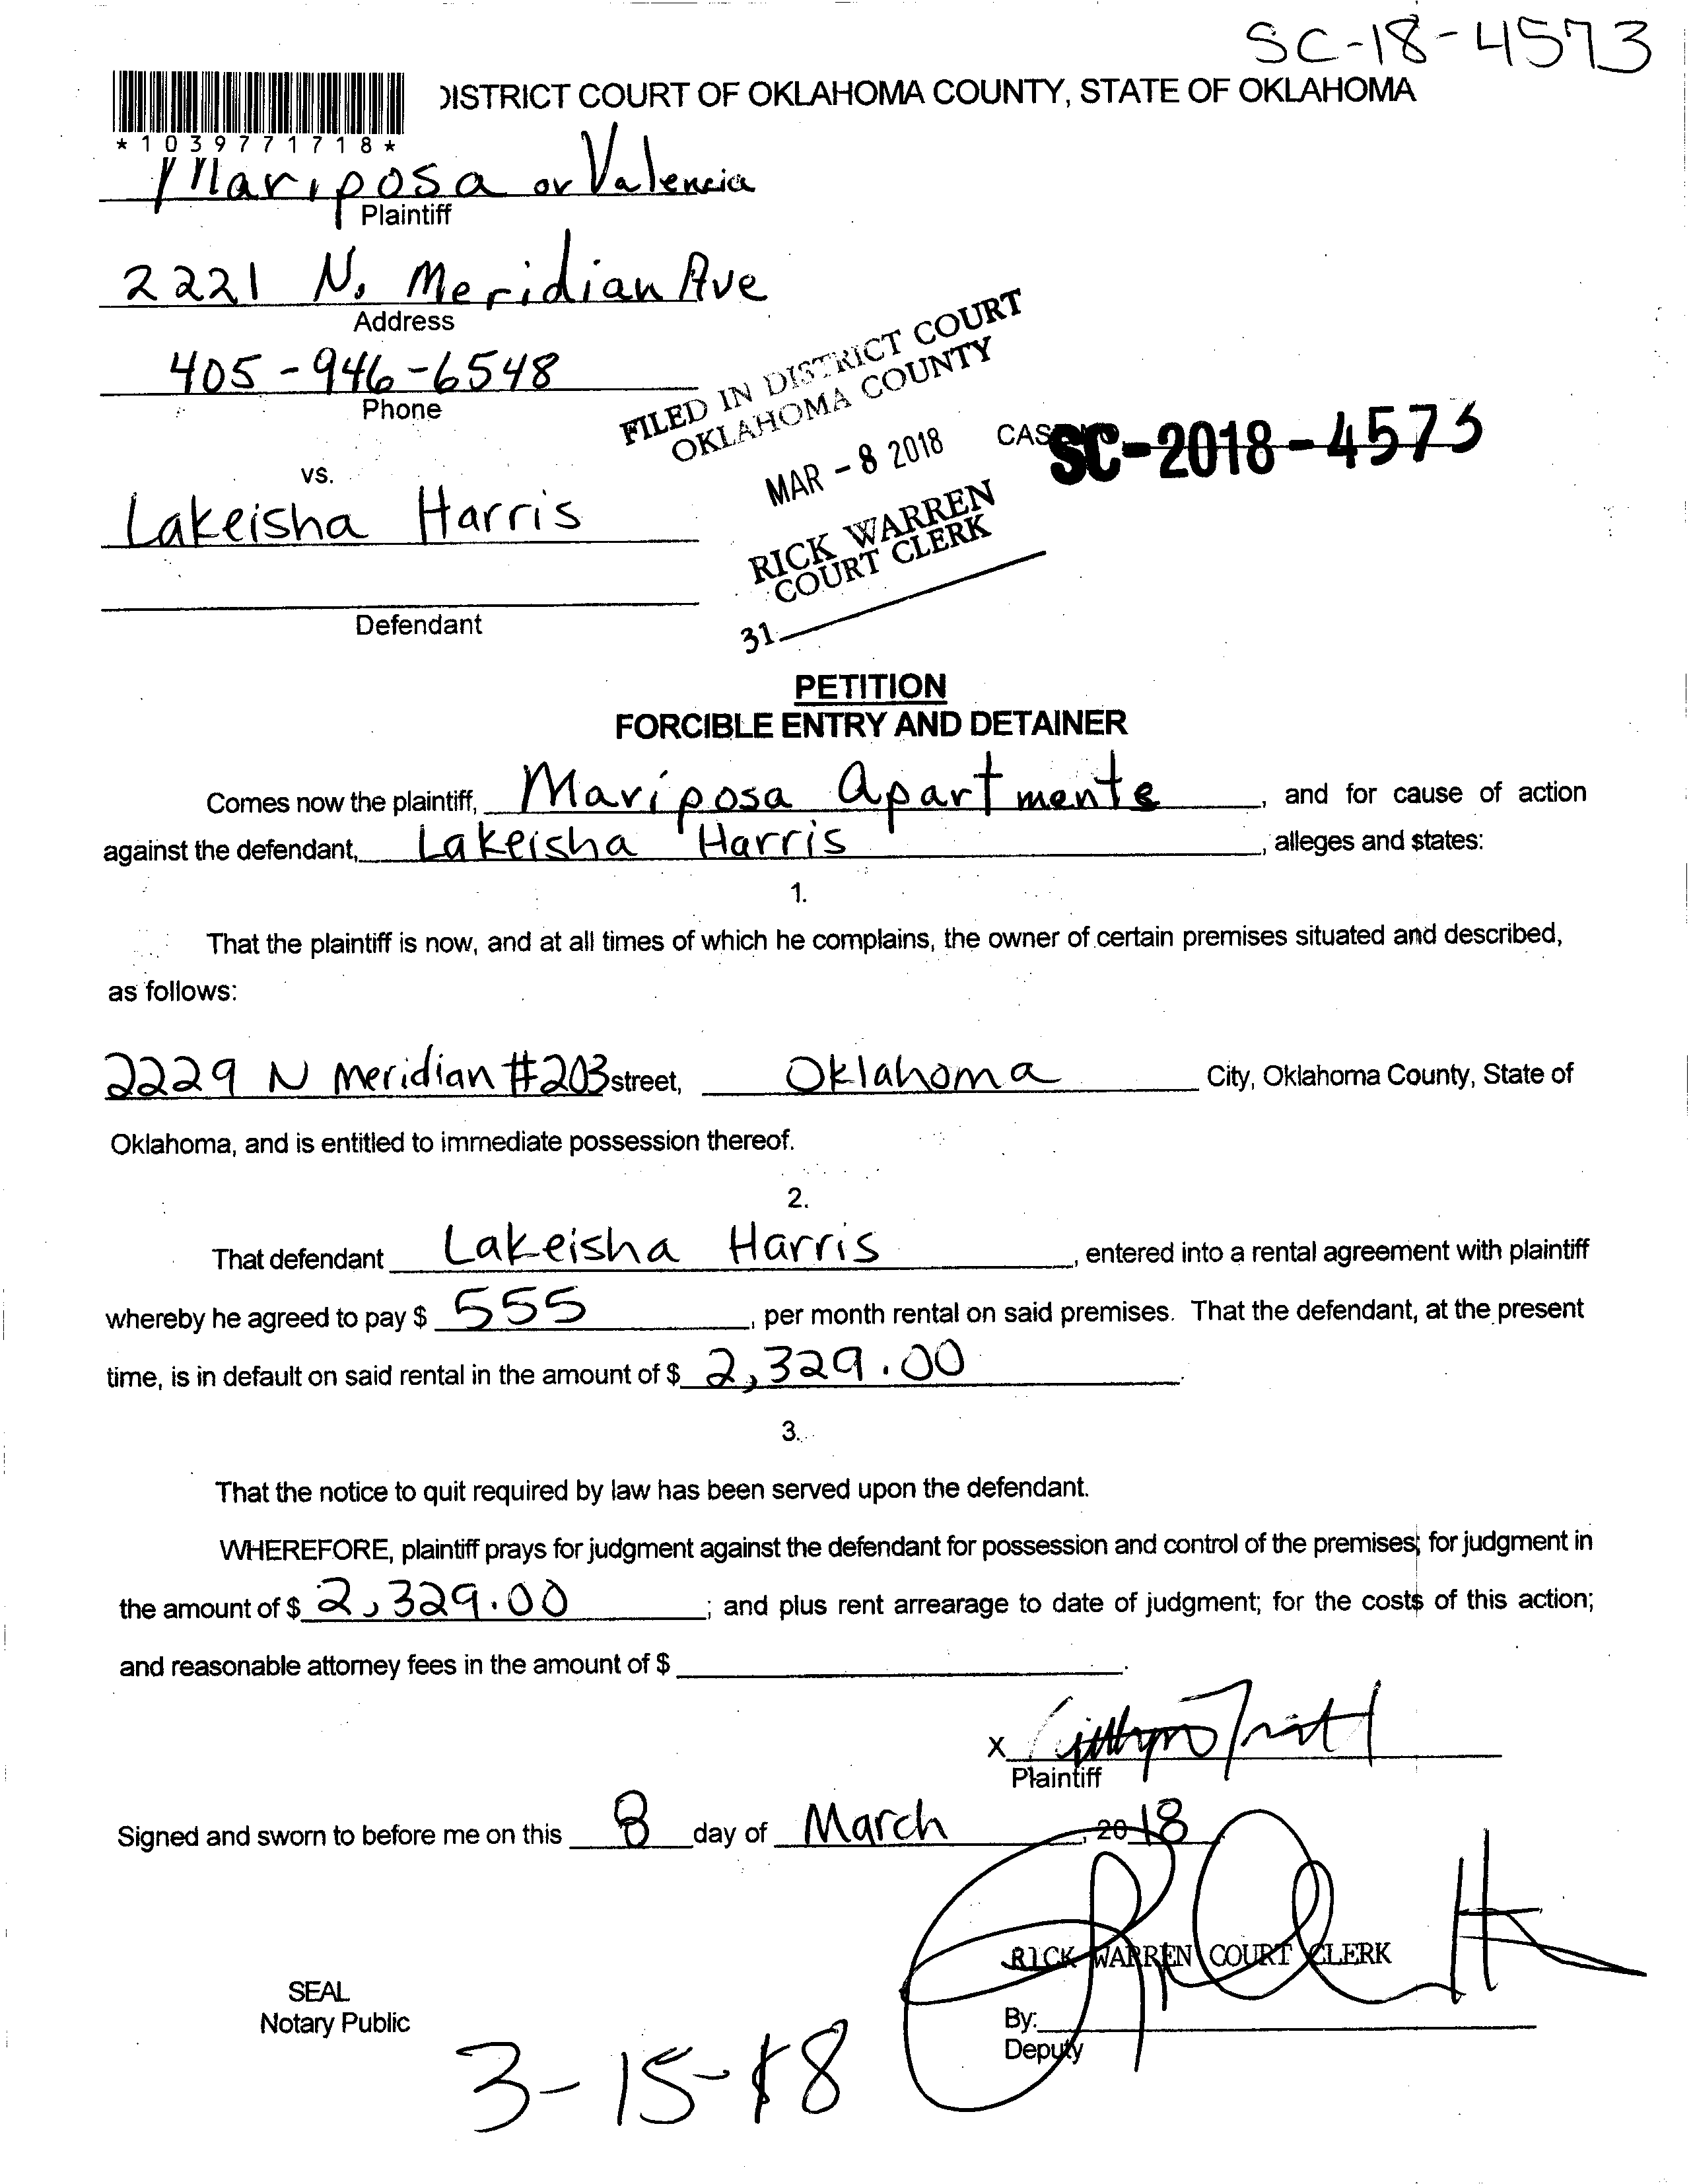 SC-18-4573
DISTRICT COURT OF OKLAHOMA COUNTY, STATE OF OKLAHOMA
*1039771718*
Mariposa or Valencia
Plaintiff
2221 N. Meridian Ave
Address
405-946-6548
Phone
FILED IN DISTRICT COURT
OKLAHOMA COUNTY
MAR - 8 2018
RICK WARREN
COURT CLERK
31
CAS
SC-2018-4573
vs.
Lakeisha Harris
Defendant
PETITION
FORCIBLE ENTRY AND DETAINER
Comes now the plaintiff, Mariposa Apartments, and for cause of action
against the defendant, Lakeisha Harris, alleges and states:
1.
That the plaintiff is now, and at all times of which he complains, the owner of certain premises situated and described,
as follows:
2229 N Meridian #203 street, Oklahoma City, Oklahoma County, State of
Oklahoma, and is entitled to immediate possession thereof.
2.
That defendant Lakeisha Harris, entered into a rental agreement with plaintiff
whereby he agreed to pay $ 555, per month rental on said premises. That the defendant, at the present
time, is in default on said rental in the amount of $ 2,329.00.
3.
That the notice to quit required by law has been served upon the defendant.
WHEREFORE, plaintiff prays for judgment against the defendant for possession and control of the premises; for judgment in
the amount of $ 2,329.00; and plus rent arrearage to date of judgment; for the costs of this action;
and reasonable attorney fees in the amount of $ .
X
Plaintiff
Signed and sworn to before me on this 8 day of March, 2018
RICK WARREN COURT CLERK
SEAL
Notary Public
By:
Deputy
3-15-18